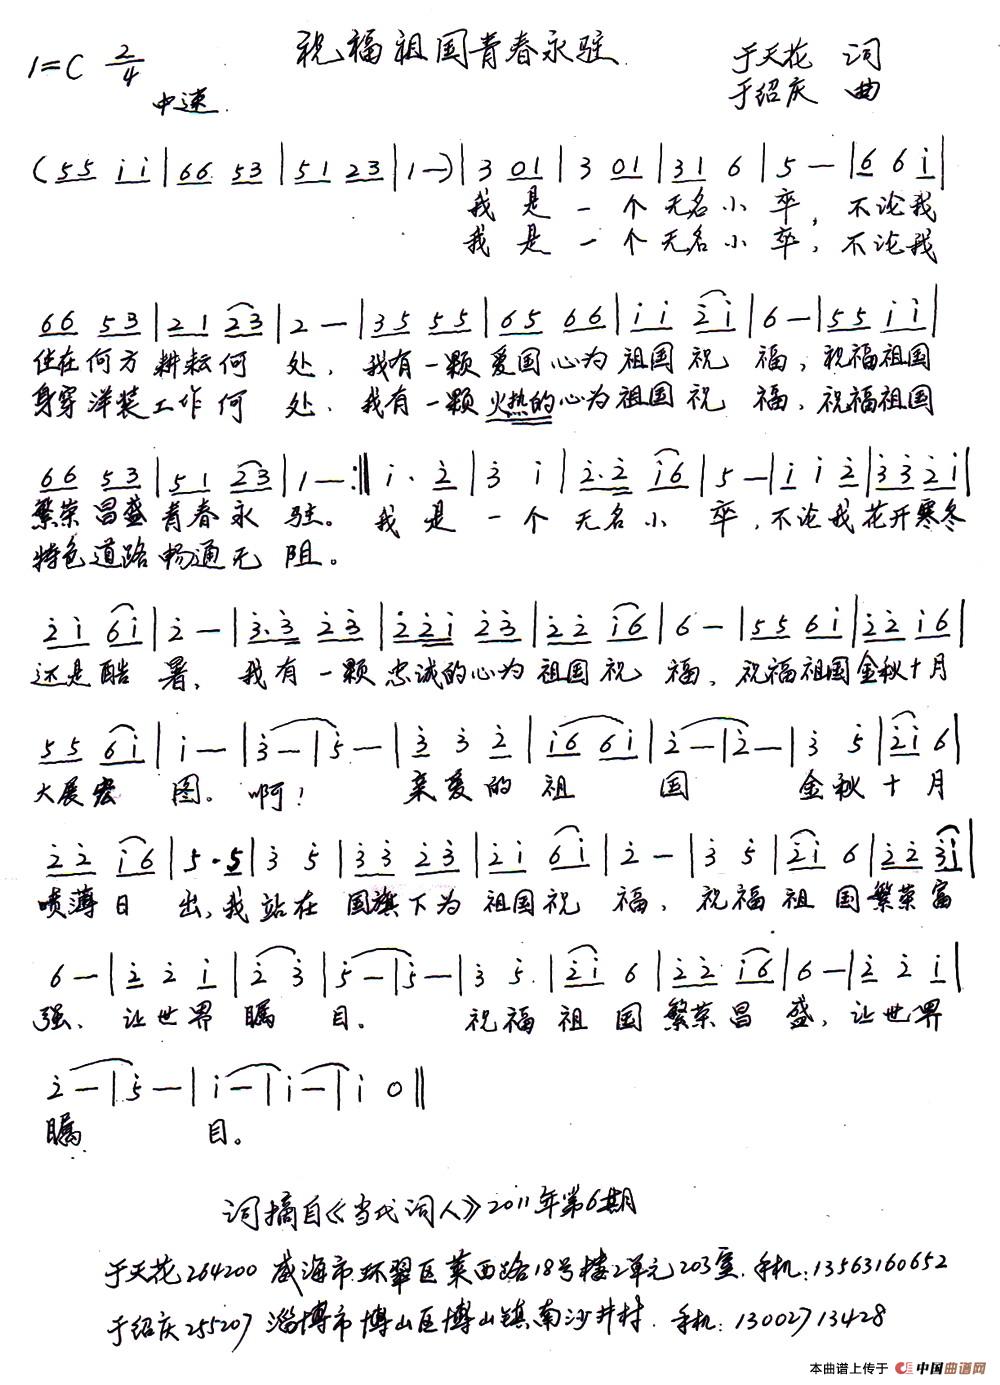 祝福祖国青春永驻
1=C 2/4
中速
于天花 词
于绍庆 曲
(55 i i|66 53|51 23|1—)|3 01|3 01|31 6|5—|6 6 i|
我是一个无名小卒，不论我
我是一个无名小卒，不论我
66 53|21 23|2—|35 55|65 66|i i 2̇ i|6—|55 i i|
住在何方耕耘何处，我有一颗爱国心为祖国祝福，祝福祖国
身穿洋装工作何处，我有一颗火热的心为祖国祝福，祝福祖国
66 53|51 23|1—:‖i· 2̇|3̇ i|2̇·2̇ i6|5—|i i 2̇|3̇3̇2̇i|
繁荣昌盛青春永驻。我是一个无名小卒，不论我花开寒冬
特色道路畅通无阻。
2̇i 6i|2̇—|3̇·3̇ 2̇3̇|2̇2̇i 2̇3̇|2̇2̇ i6|6—|55 6i|2̇2̇ i6|
还是酷暑，我有一颗忠诚的心为祖国祝福，祝福祖国金秋十月
55 6i|i—|3̇—|5̇—|3̇ 3̇ 2̇|i6 6i|2̇—|2̇—|3̇ 5̇|2̇i 6|
大展宏图。啊！亲爱的祖国金秋十月
2̇2̇ i6|5·5|3̇ 5̇|3̇3̇ 2̇3̇|2̇i 6i|2̇—|3̇ 5̇|2̇i 6|2̇2̇ 3̇i|
喷薄日出，我站在国旗下为祖国祝福，祝福祖国繁荣富
6—|2̇ 2̇ i|2̇ 3̇|5̇—|5̇—|3̇ 5̇|2̇i 6|2̇2̇ i6|6—|2̇ 2̇ i|
强，让世界瞩目。祝福祖国繁荣昌盛，让世界
2̇—|5̇—|i—|i—|i 0‖
瞩目。
词摘自《当代词人》2011年第6期
于天花264200 威海市环翠区莱西路18号楼2单元203室．手机：13563160652
于绍庆255207 淄博市博山区博山镇南沙井村．手机：13002713428
本曲谱上传于 中国曲谱网